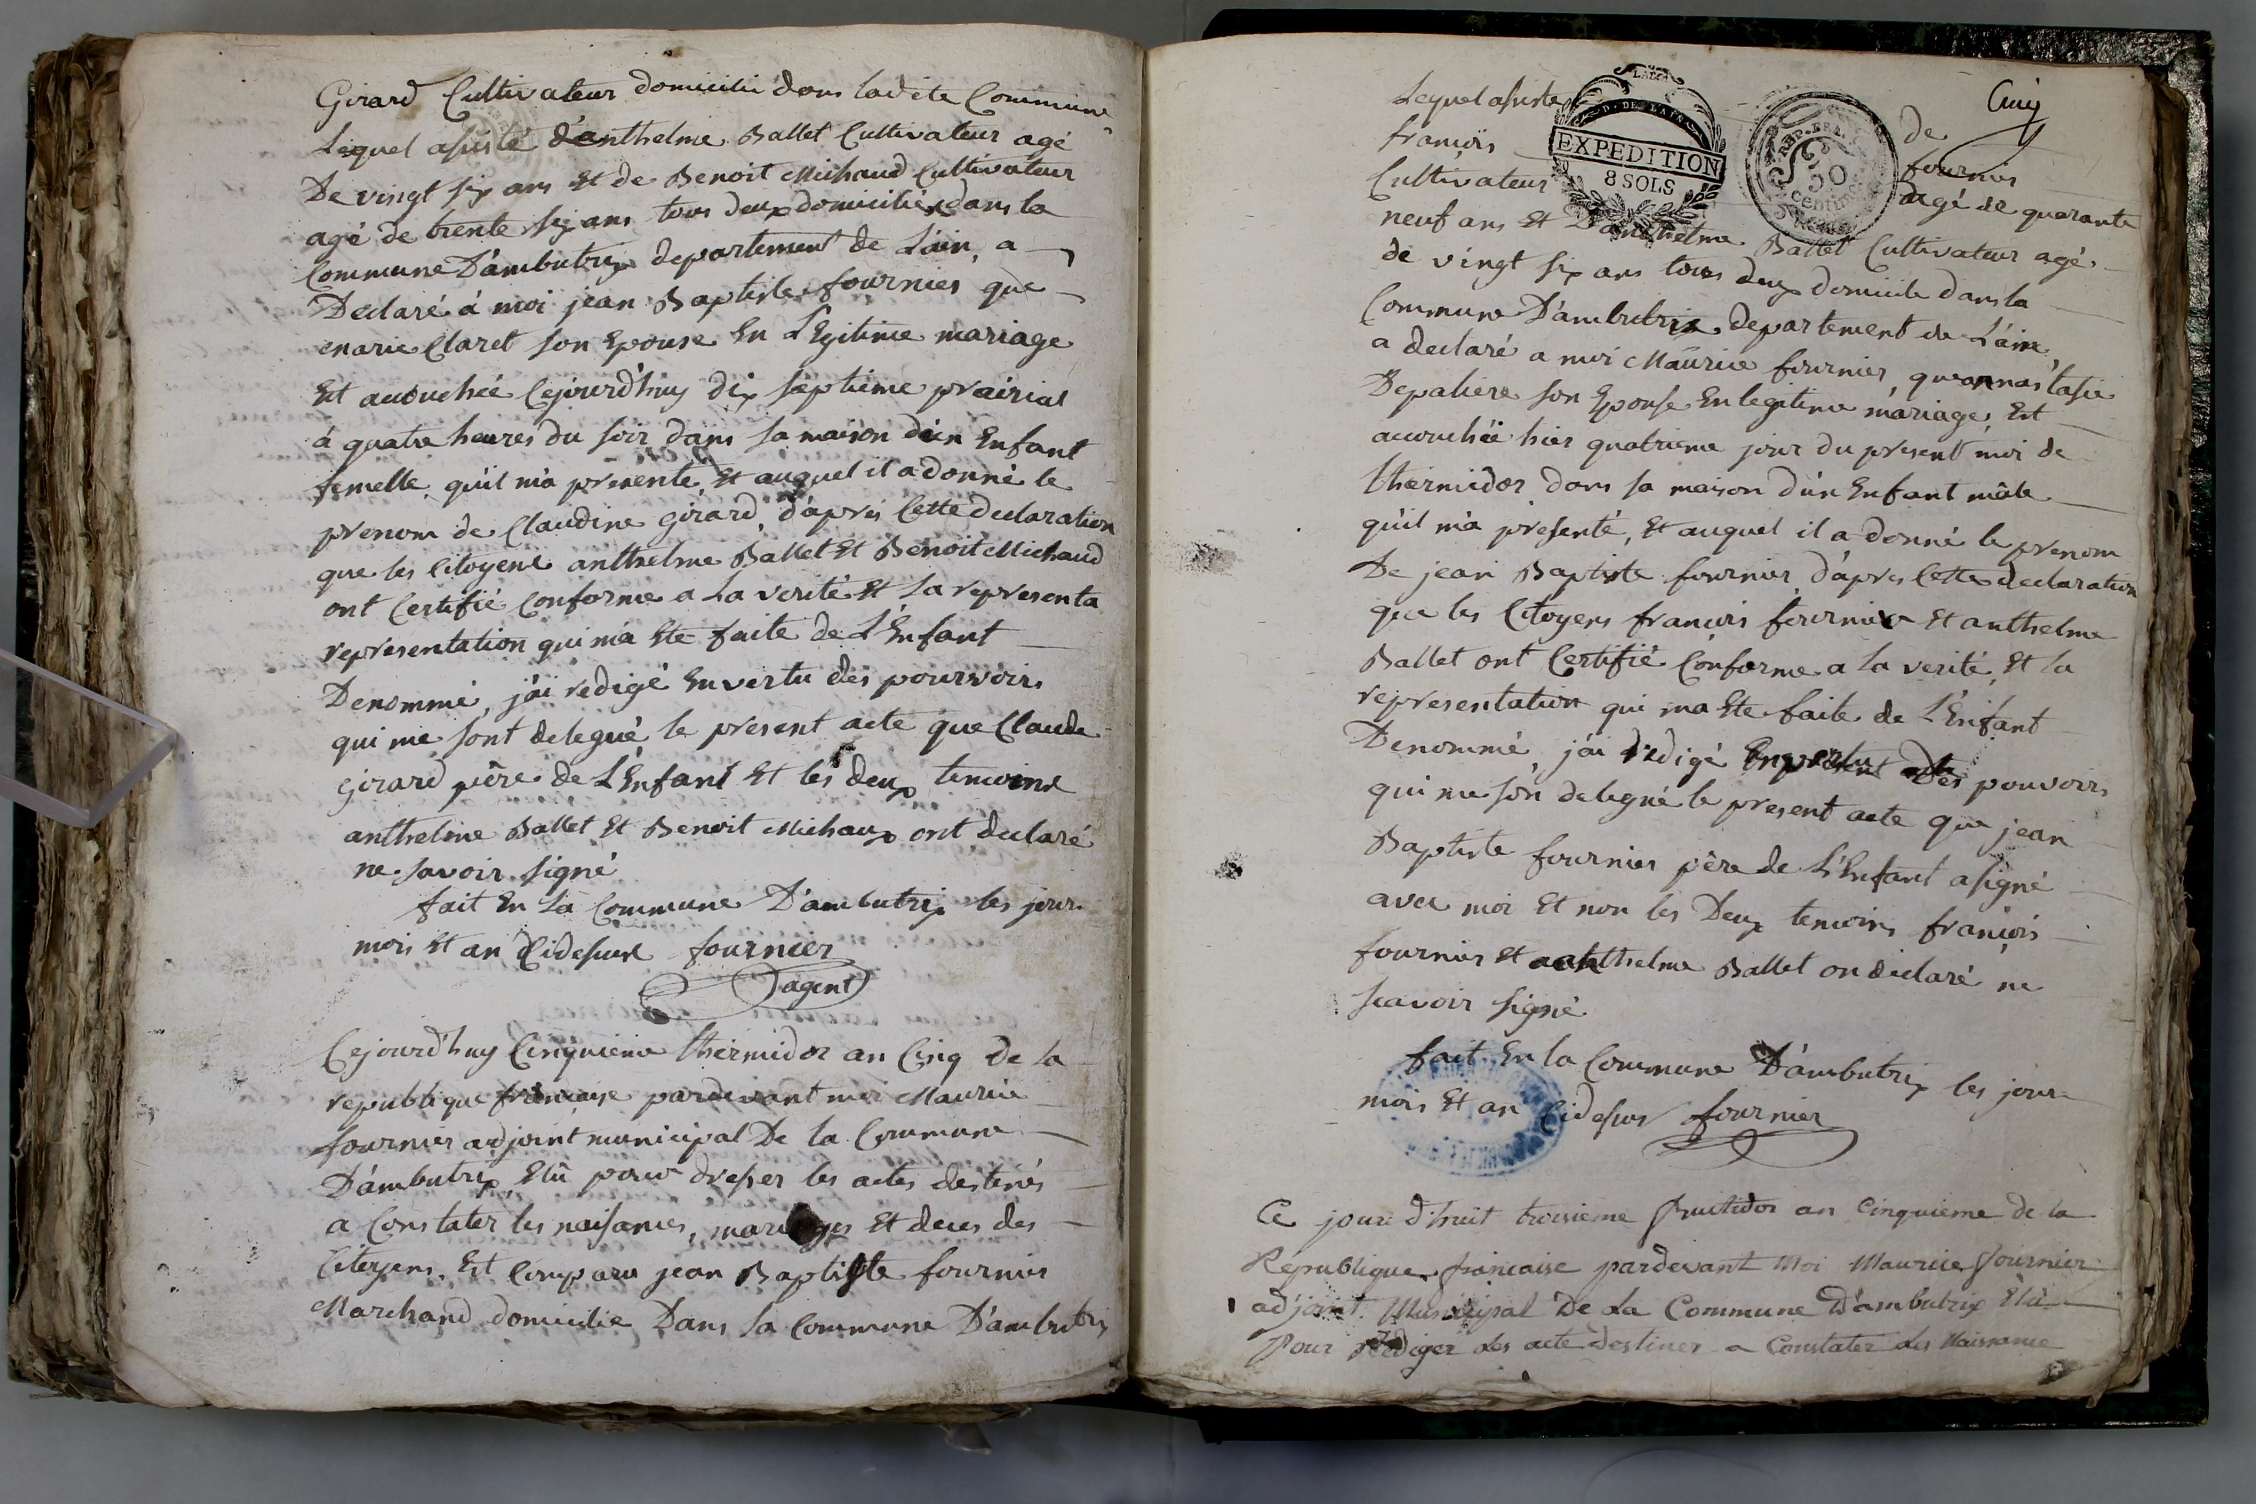 Girard Cultivateur domicilié dans ladite Commune
Lequel assisté d'anthelme Ballet Cultivateur agé
De vingt six ans et de Benoit Michaud Cultivateur
agé de trente six ans tous deux domiciliés dans la
Commune D'ambutrix departement de L'ain, a
Declaré à moi jean Baptiste fournier que
marie Claret son Epouse En L'Egitime mariage
Est acouchée Cejourd'huy dix septieme prairial
à quatre heures du soir dans sa maison d'un Enfant
femelle qu'il m'a presenté Et auquel il a donné le
prenom de Claudine Girard, d'aprés Cette declaration
que les Citoyens anthelme Ballet Et Benoit Michaud
ont Certifié Conforme a La verité Et la representa
representation qui m'a Ete faite de L'Enfant
Denommé, j'ai redigé En vertu des pouvoirs
qui me sont delegué le present acte que Claude
Girard pére de L'Enfant Et les deux temoins
anthelme Ballet Et Benoit Michaux ont declaré
ne savoir signé
fait En La Commune D'ambutrix les jour
mois Et an Cidesus fournier
agent
Cejourd'huy Cinquieme thermidor an Cinq de la
republique française pardevant moi Maurice
fournier adjoint municipal De la Commune
D'ambutrix Elû pour dresser les actes destinés
a Constater les naissances, mariages Et deces des
Citoyens. Est Comparu jean Baptiste fournier
Marchand domicilie Dans la Commune D'ambutrix
Cinq
Lequel assisté de
françois fournier
Cultivateur agé de quarante
LAIN
D. DE L'AIN
EXPEDITION
8 SOLS
REP. FRA.
50
centimes
neuf ans Et D'anthelme Ballet Cultivateur agé
de vingt six ans tous deux domicile dans la
Commune D'ambutrix departement de L'ain,
a declaré a moi Maurice fournier, qu'annastasie
Depaliere son Epouse En legitime mariage, Est
acouchée hier quatrieme jour du present moi de
thermidor dans sa maison d'un Enfant mâle
qu'il m'a presenté, Et auquel il a donné le prenom
De jean Baptiste fournier d'apres Cette declaration
que les Citoyens françois fournier Et anthelme
Ballet ont Certifié Conforme a la verité Et la
representation qui ma Ete faite de L'Enfant
Denommé, j'ai redigé En vertu Des pouvoirs
qui me son delegué le present acte que jean
Baptiste fournier pére de L'Enfant a signé
avec moi Et non les Deux temoins françois
fournier Et anthelme Ballet on declaré ne
scavoir signé
fait En la Commune D'ambutrix les jour
mois Et an Cidesus fournier
Ce jour d'huit troisieme fructidor an Cinquieme de la
Republique française pardevant Moi Maurice fournier
adjoint Municipal De La Commune D'ambutrix Elû
Pour Rediger les acte destiner a Constater les Naissance